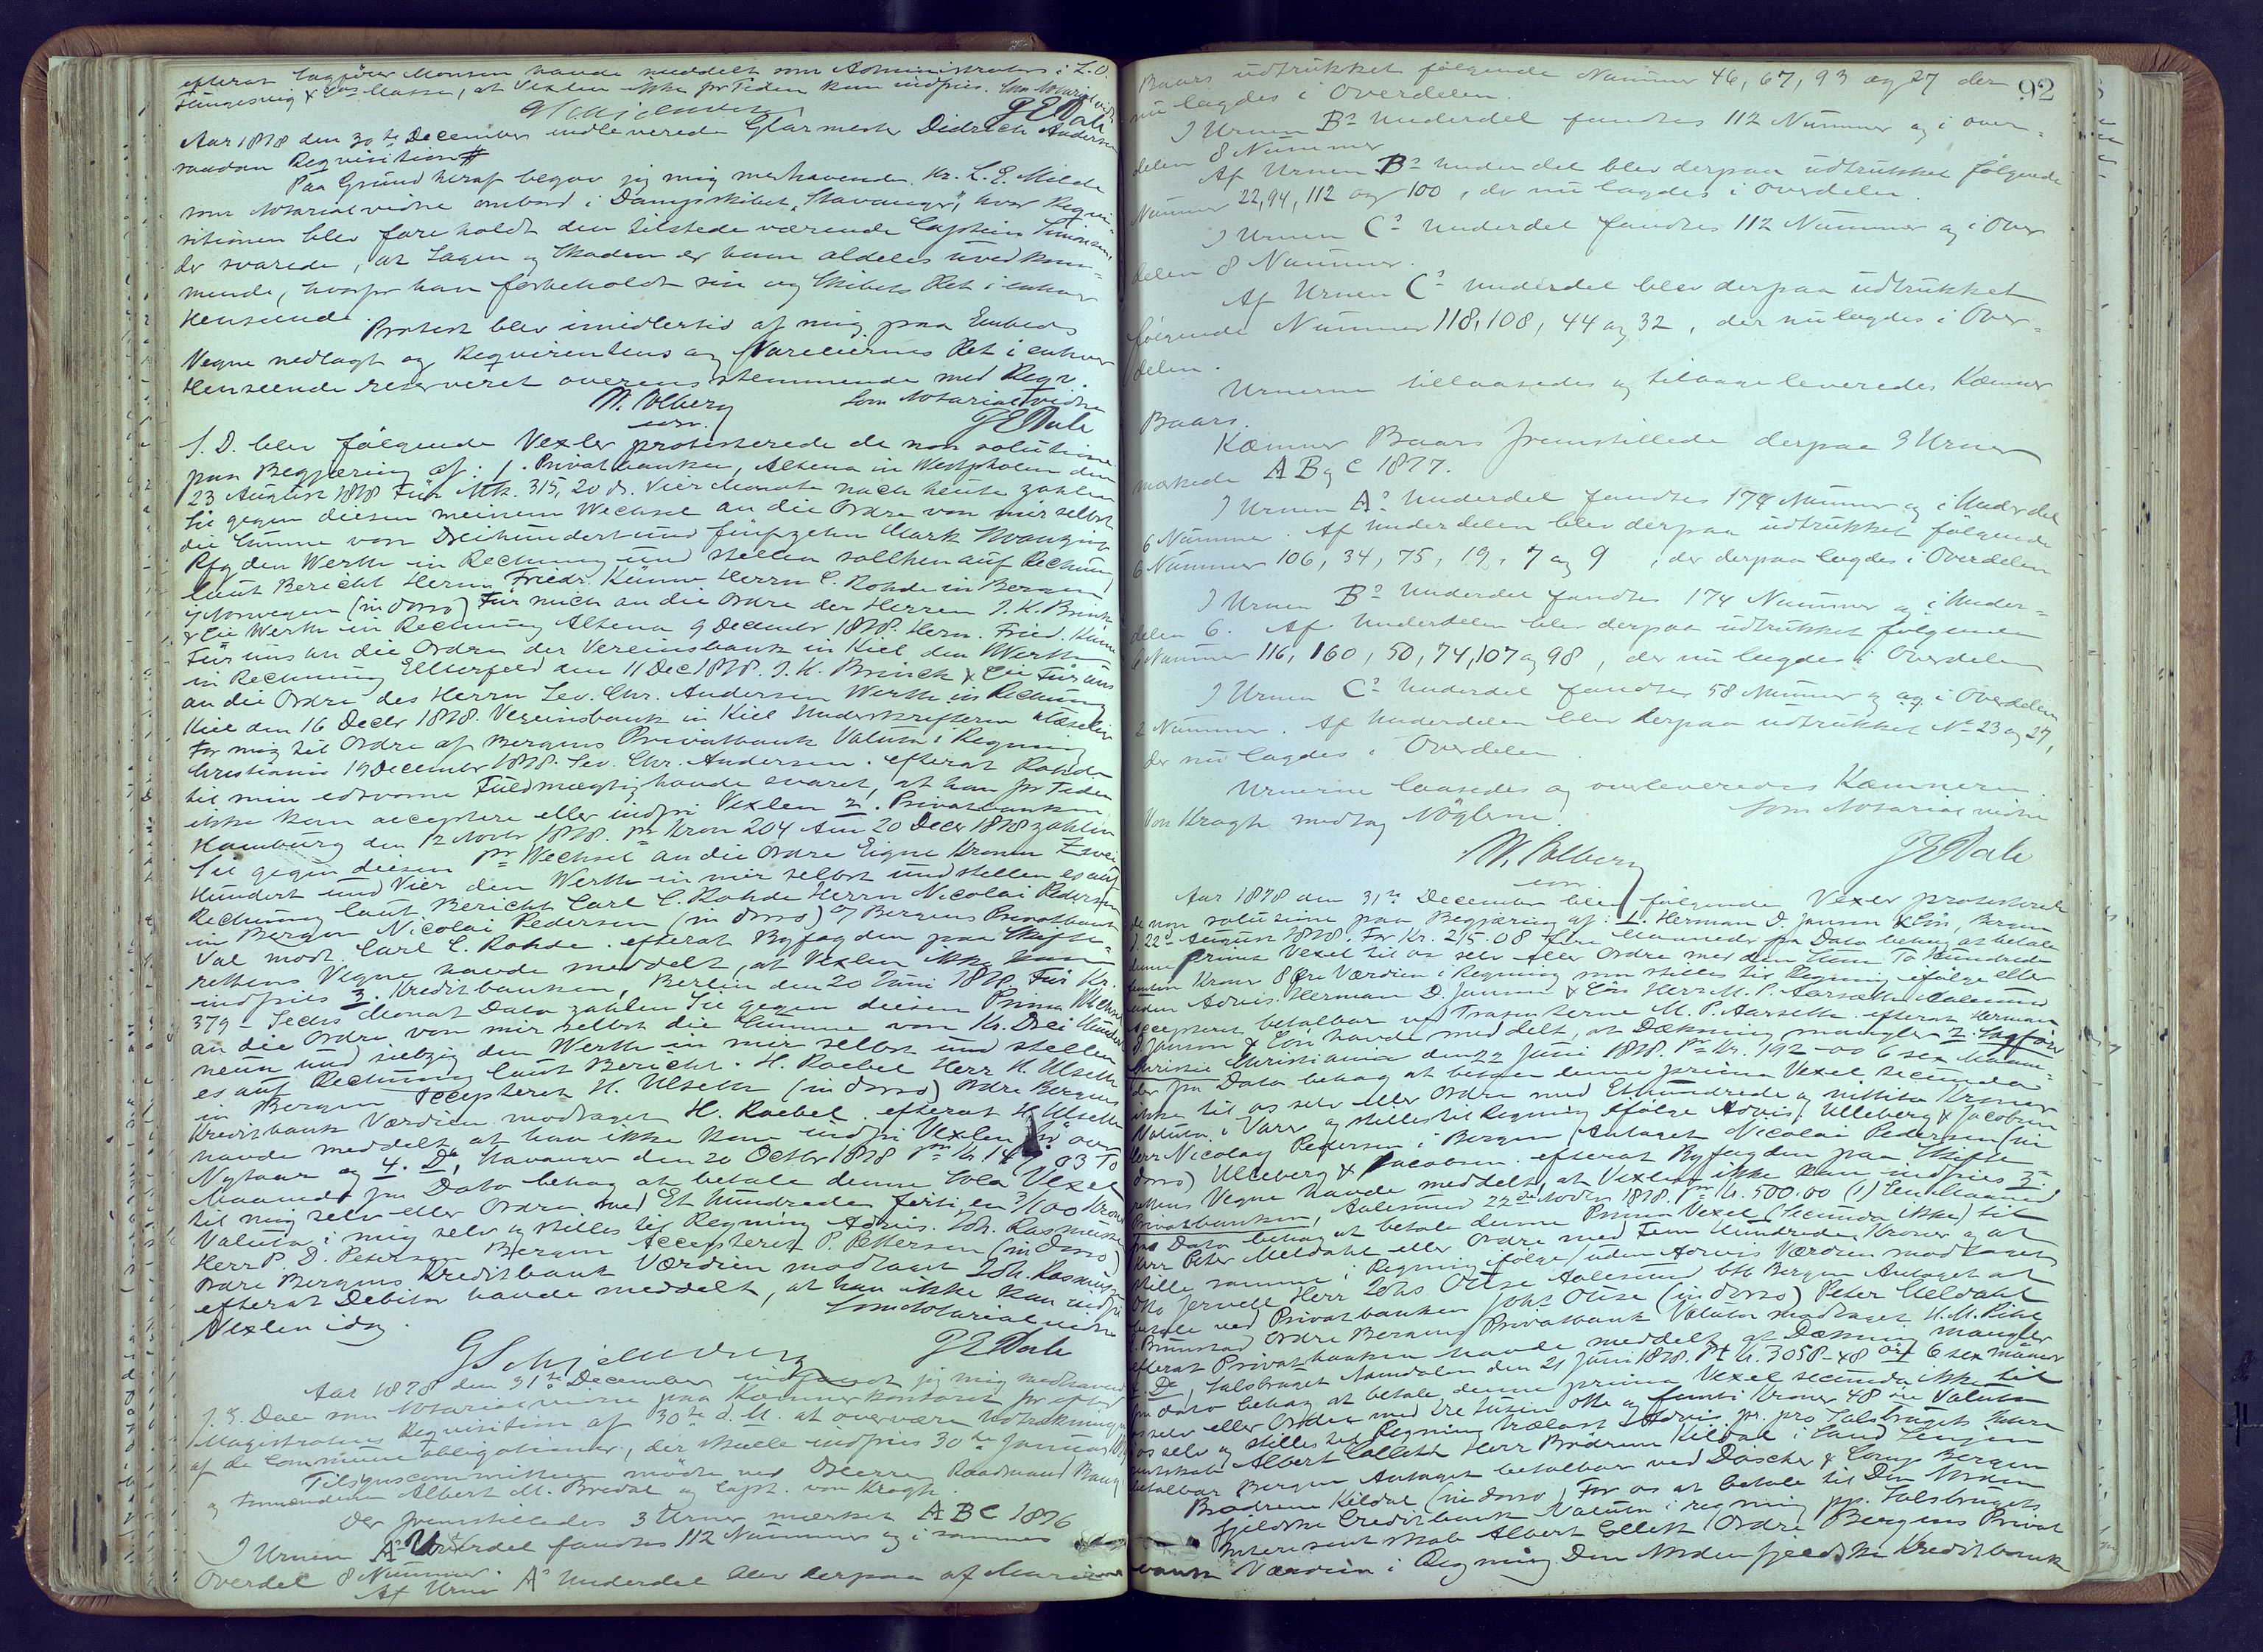 efterat Sagfører Monsen havde meddelt som Administrator i L. O.
& Co's Masse, at Vexlen ikke for Tiden kan indfries. Som Notarialvidne
G Schjelderup J E Dale
Aar 1878 den 30te December indleverede Glarmester Didrich Andersen
saadan Requisition #
Paa Grund heraf begav jeg mig medhavende Hr. L. E. Milde
som Notarialvidne ombord i Dampskibet "Stavanger", hvor Requi-
sitionen blev foreholdt den tilstedeværende Captein Simonsen,
der svarede, at Sagen og Skaden er ham aldeles uvedkom-
mende, hvorfor han forbeholdt sin og Skibets Ret i enhver
Henseende.
Protest blev imidlertid af mig paa Embeds
Vegne nedlagt og Requirentens og Vareeiernes Ret i enhver
Henseende reserveret overensstemmende med Requ.
W. Olberg Som Notarialvidne
J E Dale
S. D. blev følgende Vexler protesterede de non solutione
paa Begjæring af: 1. Privatbanken, Altena in Westphalen den
23 August 1878 Für Mk. 315, 20 ds. Vier Monate nach heute zahlen
Sie gegen diesen meinem Wechsel an die Ordre von mir selbst
die Summe von Dreihundert und fünfzehn Mark Zwanzig
Pfg den Werth in Rechnung und stellen sollchen auf Rechnung
laut Bericht Herrn Friedr. Künne Herrn C. Rohde in Bergen
i/ Norwegen (in dosso) Für mich an die Ordre der Herren J. K. Brink
& Cie Werth in Rechnung Altena 9 December 1878. Hern. Fried. Künne
Für uns an die Ordre der Vereinsbank in Kiel den Werth
in Rechnung Elberfeld den 11 Dec 1878. J. K. Brinck & Cie Für uns
an die Ordre des Herrn Sev. Chr. Andersen Werth in Rechnung
Kiel den 16 Decbr 1878. Vereinsbank in Kiel Underskrifterne ulæselig
For mig til Ordre af Bergens Privatbank Valuta i Regning
Christiania 19 December 1878. Sev. Chr. Andersen. efterat Rohde
til min edsvorne Fuldmægtig havde svaret, at han for Tiden
ikke kan acceptere eller indfri Vexlen 2. Privatbanken
Hamburg den 12 Novbr 1878. pr Kron 204 Am 20 Decbr 1878 zahlen
Sie gegen diesen pr Wechsel an die Ordre Eigne Kronen Zwei
Hundert und Vier den Werth in mir selbst und stellen es auf
Rechnung laut Bericht Carl C. Rohde Herrn Nicolai Pedersen
in Bergen Nicolai Pedersen (in dosso) O/ Bergens Privatbank
Val modt. Carl C. Rohde. efterat Byfogden paa Skifte-
rettens Vegne havde meddelt, at Vexlen ikke kan
indfries 3. Kreditbanken, Berlin den 20 Juni 1878 Für Kr.
379 - Sechs Monat Dato zahlen Sie gegen diesen Prima Wechsel
an die Ordre von mir selbst die Summe von Kr. Drei Hundert
neun und siebzig den Werth in mir selbst und stellen
es auf Rechnung laut Bericht. H. Raebel Herr H. Ulseth
in Bergen accepteret H. Ulseth (in dosso) Ordre Bergens
Kreditbank Værdien modtaget H. Raebel. efterat H Ulseth
havde meddelt at han ikke kan indfri Vexlen før over
Nytaar og 4. Do, Stavanger den 20 Octbr 1878 Pr Kr. 03 To
Maaneder fra Dato behag at betale denne Sola Vexel
til mig selv eller Ordre med Et Hundrede førti en 3/100 Kroner
Valuta i mig selv og stilles til Regning Advis. Joh. Rasmussen
Herr P. D. Petersen Bergen Accepteret P. Pettersen (in dosso)
Ordre Bergens Kreditbank Værdien modtaget Joh. Rasmussen
efterat Debitor havde meddelt, at han ikke kan indfri
Vexlen idag. Som Notarialvidne
G Schjelderup J E Dale
Aar 1878 den 31te December indfandt jeg mig medhavende
J. E. Dale som Notarialvidne paa Kæmnerkontoret for efter
Magistratens Requisition af 30te d. M. at overvære Udtrækningen
af de Communeobligationer, der skulle indfries 30te Januar
Tilsynscommitteen mødte ved Dherrer Raadmand
og Formændene Albert M. Bredal og Capt. von Krogh.
Der fremstilledes 3 Urner mærket A B C 1876
I Urnen A's Underdel fandtes 112 Nummer og i sammes
Overdel 8 Nummer.
Af Urne A's Underdel blev derpaa af
92
Baars udtrukket følgende Nummer 46, 67, 93 og 27 der
nu lagdes i Overdelen.
I Urnen B's Underdel fandtes 112 Nummer og i over-
delen 8 Nummer
Af Urnen B's Underdel blev derpaa udtrukket følgende
Nummer 22, 94, 112 og 100, der nu lagdes i Overdelen.
I Urnen C's Underdel fandtes 112 Nummer og i Over
delen 8 Nummer.
Af Urnen C's Underdel blev derpaa udtrukket
følgende Nummer 118, 108, 44 og 32, der nu lagdes i Over-
delen.
Urnerne tillaasedes og tilbageleveredes Kæmner
Baars.
Kæmner Baars fremstillede derpaa 3 Urner
mærkede A B og C 1877.
I Urnen A's Underdel fandtes 174 Nummer og i Underdel
6 Nummer. Af Underdelen blev derpaa udtrukket følgende
6 Nummer 106, 34, 75, 19, 7 og 9, der derpaa lagdes i Overdelen
I Urnen B's Underdel fandtes 174 Nummer og i Under-
delen 6. Af Underdelen blev derpaa udtrukket følgende
6 Nummer 116, 160, 50, 74, 107 og 98, der nu lagdes i Overdelen
I Urnen C's Underdel fandtes 58 Nummer og og i Overdelen
2 Nummer. Af Underdelen blev derpaa udtrukket No 23 og 27,
der nu lagdes i Overdelen.
Urnerne laasedes og overleveredes Kæmneren.
Von Krogh modtog Nøglerne. Som Notarialvidne
W. Olberg J E Dale
Aar 1878 den 31te December blev følgende Vexler protesterede
de non solutione paa Begjæring af: 1. Herman D Janson & Co,
d. 22d August 1878. For Kr. 215.08 Fire Maaneder fra Dato behag at betale
denne prima Vexel til os selv eller Ordre med den Sum To Hundrede
femten Kroner 8 Øre Værdien i Regning som stilles til Regning efølge eller
uden Advis. Herman D. Janson & Co. Herr M. P. Aarsæth Aalesund
Accepteret betalbar ved Trassenterne M. P. Aarseth. efterat Herman
D. Janson & Co havde meddelt, at Dækning mangler 2. Sagfører
Christie Christiania den 22 Juni 1878. Pr Kr. 192-00 6 sex Maane-
der fra Dato behag at betale denne prima Vexel secunda
ikke til os selv eller Ordre med Et Hundrede og nittito Kroner
Valuta i Varer og stilles til Regning efølge Advis. Ulleberg & Jacobsen
Herr Nicolay Pedersen i Bergen Antaget Nicolai Pedersen (in
dosso) Ulleberg & Jacobsen. efterat Byfogden paa Skifte-
rettens Vegne havde meddelt, at Vexlen ikke kan indfries 3.
Privatbanken, Aalesund 22de Novbr 1878. Pr Kr. 500.00 (1) Een Maaned
fra Dato behag at betale denne Prima Vexel (Secunda ikke) til
Herr Peter Meldahl eller Ordre med Fem Hundrede Kroner og at
stille samme i Regning følge uden Advis Værdien modtaget
Otto Jervell Herr Johs Olise Aalesund bth Bergen Antaget at
betale ved Privatbanken Johs Olise (in dosso) Peter Meldahl
Ordre Bergens Privatbank Valuta modtaget H. M.
efterat Privatbanken havde meddelt, at Dækning mangler
4. Do, Salsbruget Namdalen den 21 Juni 1878. Pr Kr. 3058-48 Øre 6 sex Maaneder
fra dato behag at betale denne prima Vexel secunda ikke til
os selv eller Ordre med tre tusen otte og femti Kroner 48 Øre Valuta
os selv og stilles til Regning Trælast Advis. pr. pro Salsbrugets Inte-
rentskab Albert Collett Herr Brødrene Kildal i Sand Senjen
betalbar Bergen Antaget betalbar ved Døscher & Comp Bergen
Brødrene Kildal (in dosso) For os at betale til Den Norden
fjeldske Creditbank Valuta i regning pp. Salsbrugets
Interesentskab Albert Collett Ordre Bergens Privat
bank Værdien i Regning Den Nordenfjeldske Kreditbank